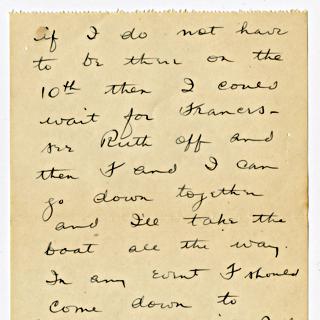 if I do not have
to be there on the
10th then I could
wait for Frances -
see Ruth off and
then F and I can
go down together
and I'll take the
boat all the way.
In any event I should
come down to